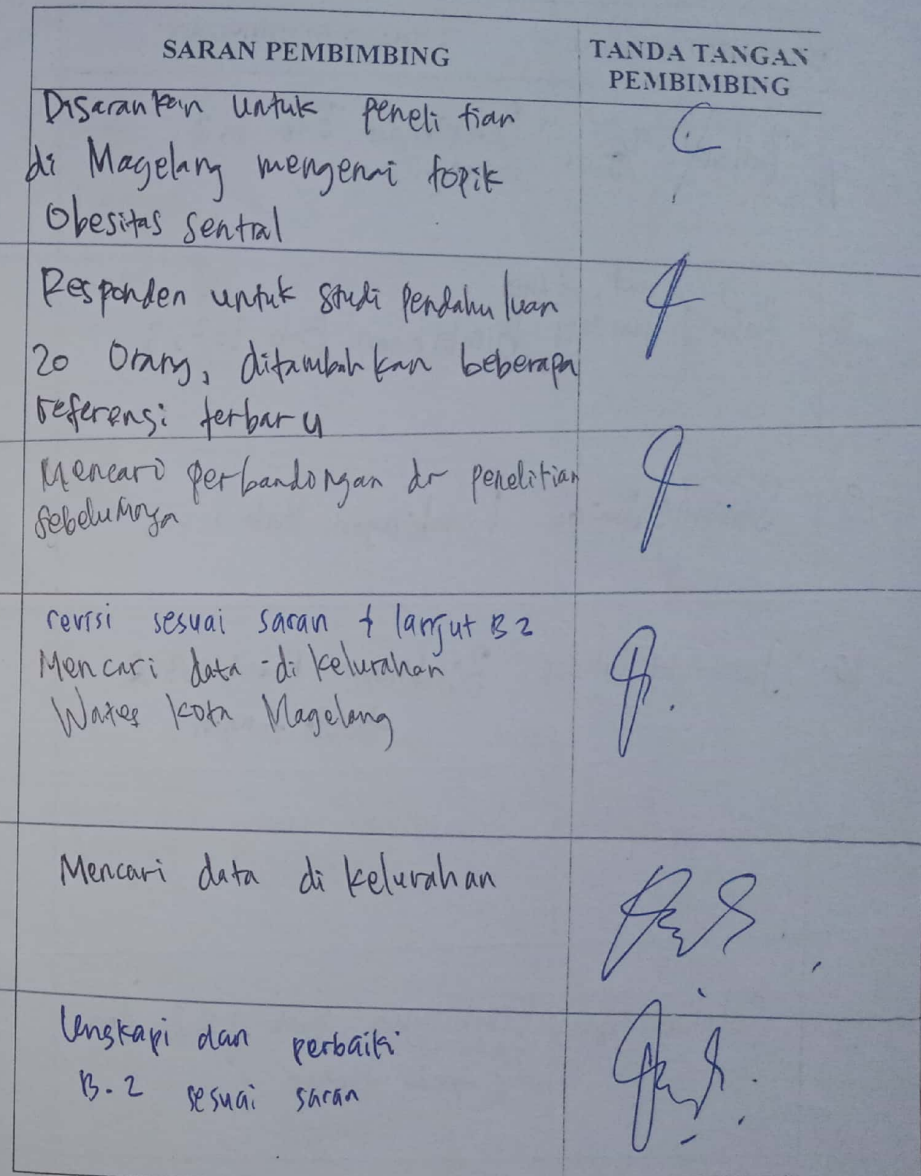 SARAN PEMBIMBING
TANDA TANGAN
PEMBIMBING
Disarankan untuk penelitian
di Magelang mengenai topik
Obesitas sentral
Responden untuk studi pendahuluan
20 Orang, ditambahkan beberapa
referensi terbaru
Mencari perbandingan dr penelitian
sebelumnya
revisi sesuai saran + lanjut B2
Mencari data di kelurahan
Wates Kota Magelang
Mencari data di kelurahan
lengkapi dan perbaiki
B.2 sesuai saran